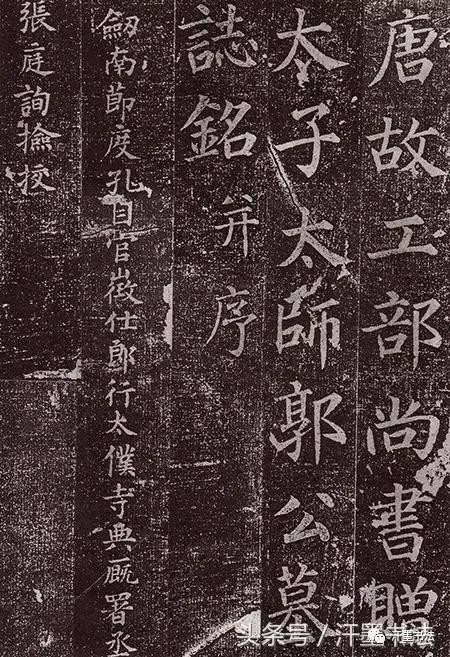 唐故工部尚書贈
太子太師郭公墓
誌銘并序
劒南節度孔目官徵仕郎行太僕寺典厩署丞
張庭詢撿挍
头条号/汗墨书法
汗墨书法